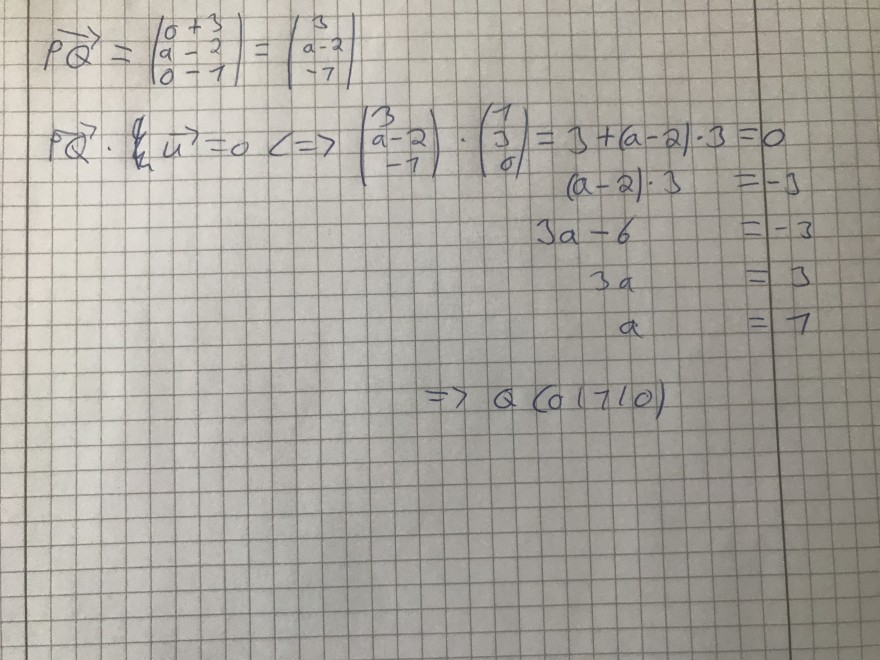 PQ⃗ = (0 + 3 / a - 2 / 0 - 1) = (3 / a-2 / -1)
PQ⃗ · u⃗ = 0 <=> (3 / a-2 / -1) · (1 / 3 / 0) = 3 + (a-2)·3 = 0
(a-2)·3 = -3
3a - 6 = -3
3a = 3
a = 1
=> Q (0|1|0)